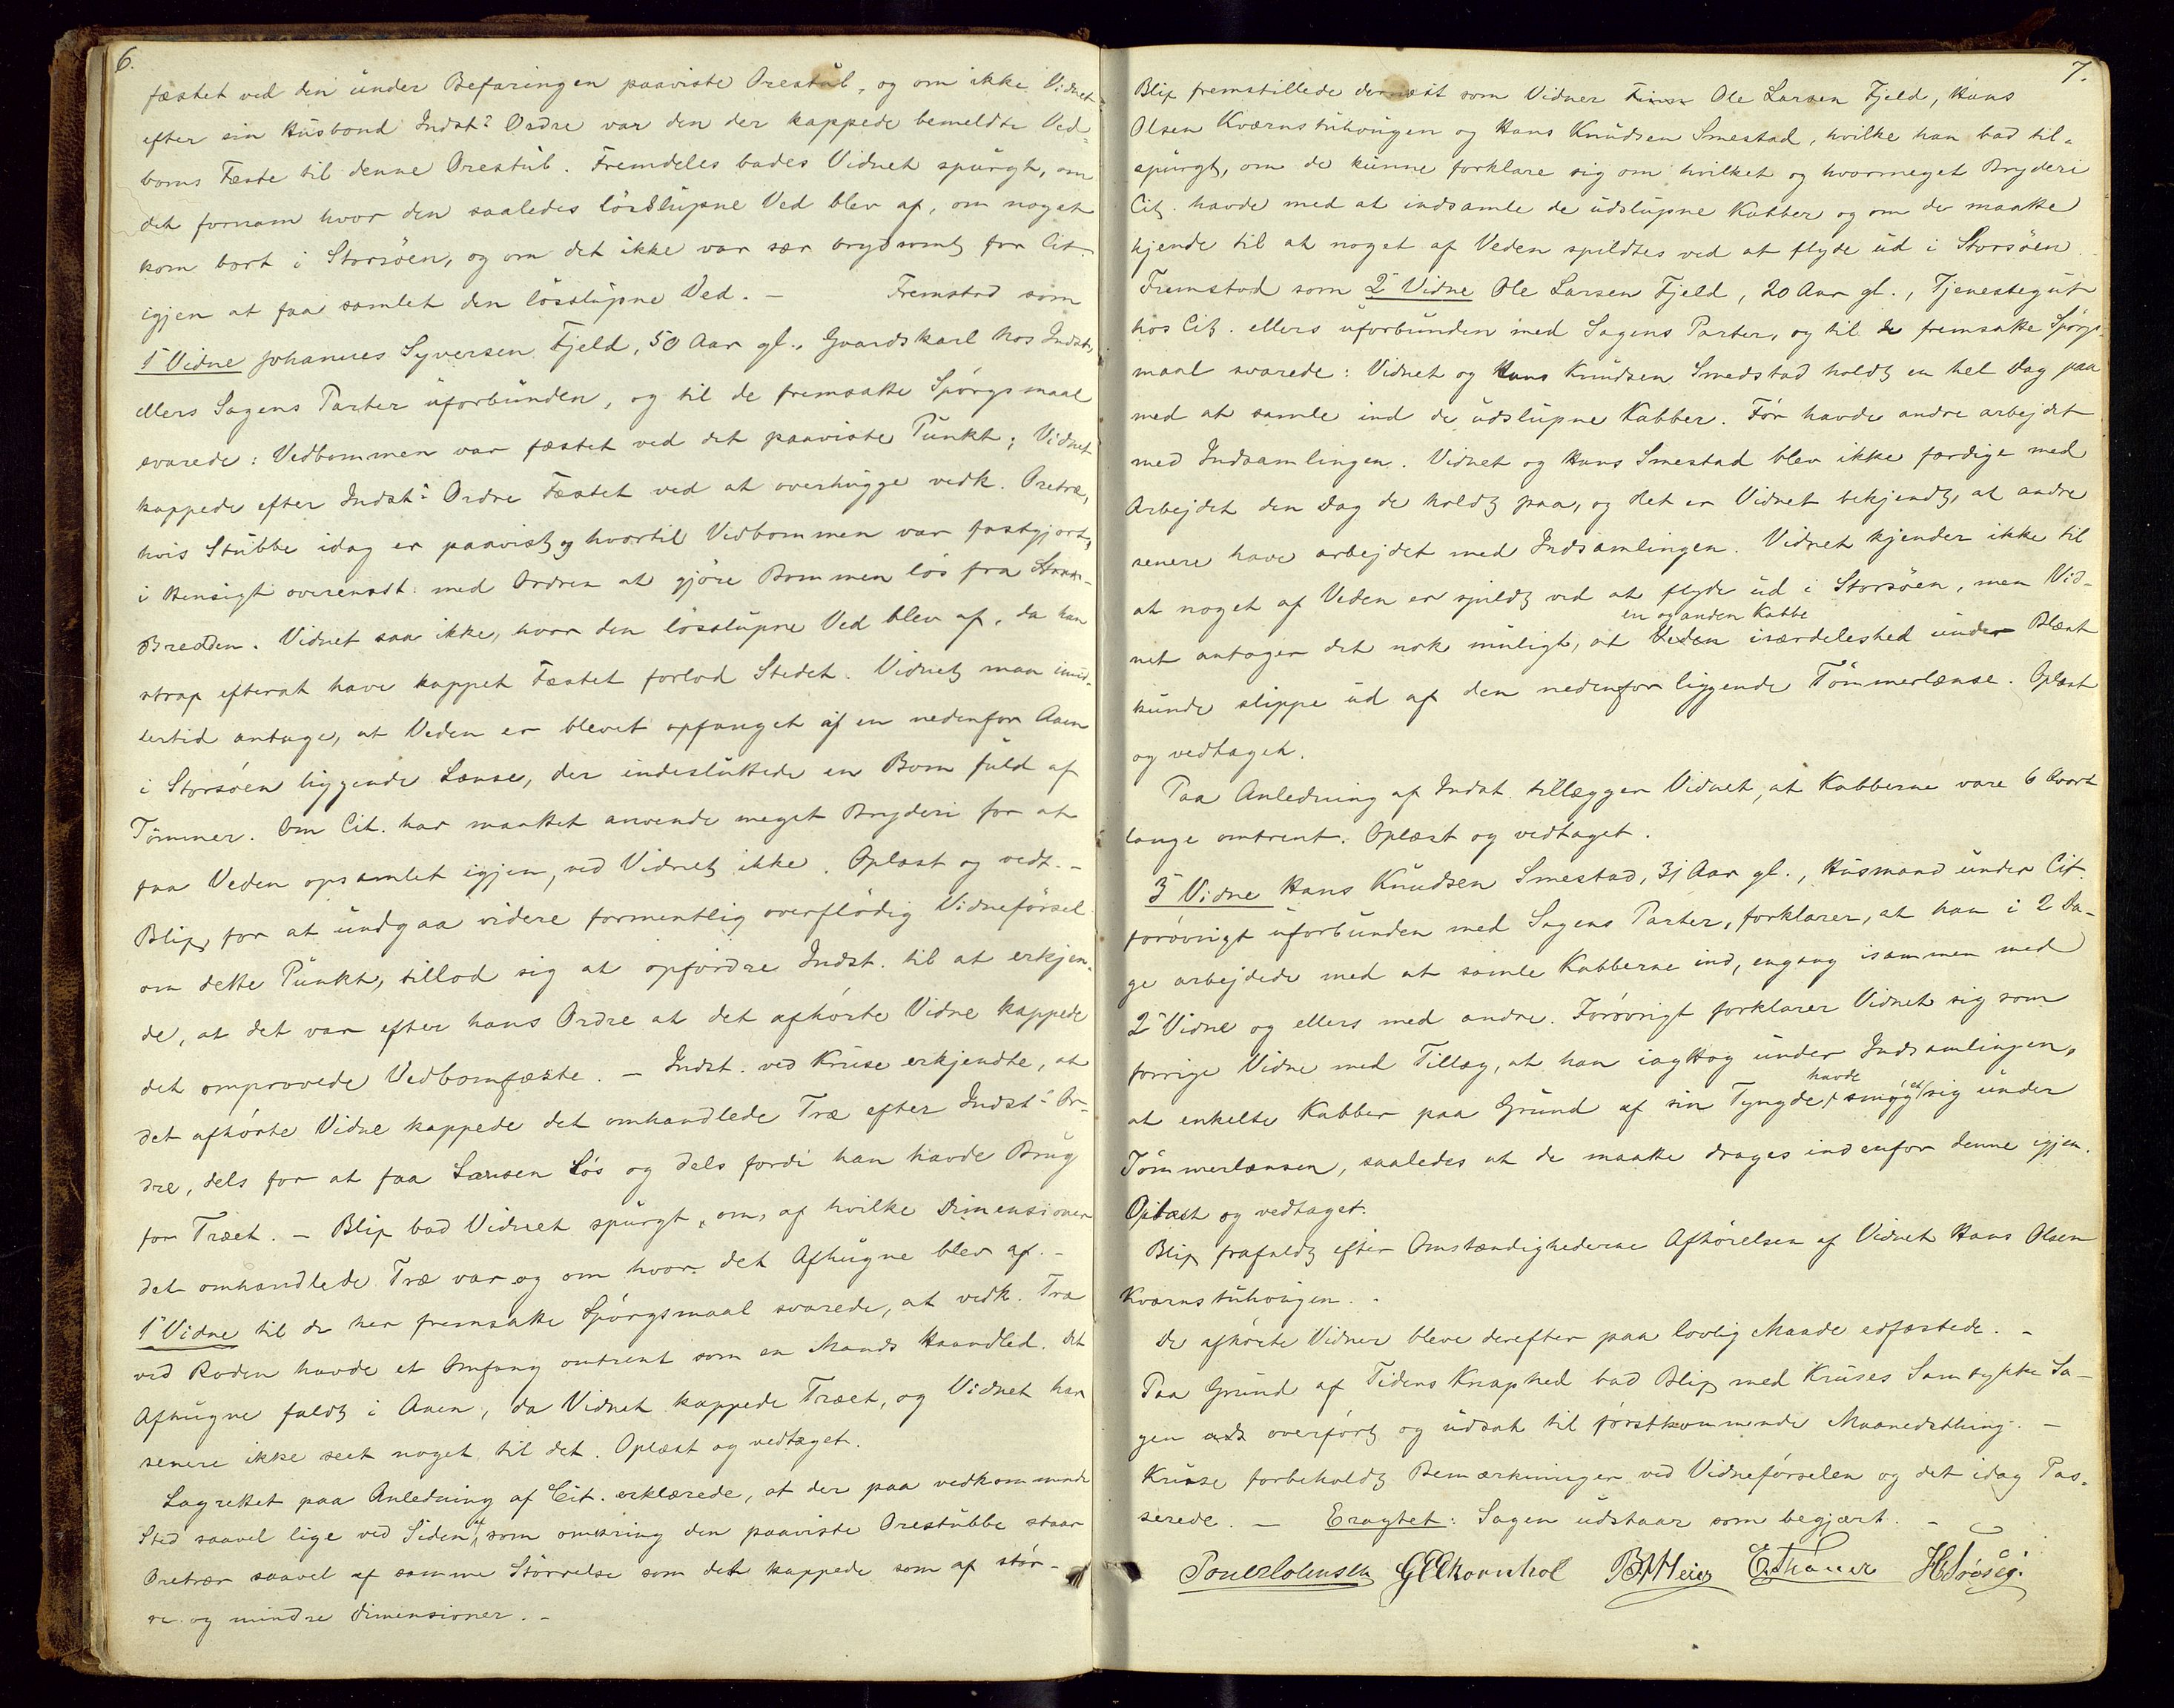 6.
fæstet ved den under Befaringen paaviste Orestub, og om ikke Vidnet
efter sin Husbond Indst.s Ordre var den der kappede bemeldte Ved-
boms Fæste til denne Orestub. Fremdeles bades Vidnet spurgt, om
det fornam hvor den saaledes løsslupne Ved blev af, om noget
kom bort i Storsøen, og om det ikke var sær brydsomt for Cit.
igjen at faa samlet den løsslupne Ved. – Fremstod som
1' Vidne Johannes Syversen Fjeld, 50 Aar gl., Gaardskarl hos Indst.,
ellers Sagens Parter uforbunden, og til de fremsatte Spørgsmaal
svarede: Vedbommen var fæstet ved det paaviste Punkt; Vidnet
kappede efter Indst.s Ordre Fæstet ved at overhugge vedk. Oretræ,
hvis Stubbe idag er paavist og hvortil Vedbommen var fastgjort,
i Hensigt overensst. med Ordren at gjøre Bommen løs fra
Bredden. Vidnet saa ikke, hvor den løsslupne Ved blev af, da han
strax efterat have kappet Fæstet forlod Stedet. Vidnet maa imid-
lertid antage, at Veden er blevet opfanget af en nedenfor Aaen
i Storsøen liggende Lænse, der indesluttede en Bom fuld af
Tømmer. Om Cit. har maattet anvende meget Bryderi for at
faa Veden opsamlet igjen, ved Vidnet ikke. Oplæst og vedt. –
Blix, for at undgaa videre formentlig overflødig Vidneførsel
om dette Punkt, tillod sig at opfordre Indst. til at erkjen-
de, at det var efter hans Ordre at det afhørte Vidne kappede
det omprovede Vedbomfæste. – Indst. ved Kruse erkjendte, at
det afhørte Vidne kappede det omhandlede Træ efter Indst.s Or-
dre, dels for at faa Lænsen løs og dels fordi han havde Brug
for Træet. – Blix bad Vidnet spurgt, om, af hvilke Dimensioner
det omhandlede Træ var og om hvor det Afhugne blev af. –
1' Vidne til de her fremsatte Spørgsmaal svarede, at vedk. Træ
ved Roden havde et Omfang omtrent som en Mands Haandled. Det
Afhugne faldt i Aaen, da Vidnet kappede Træet, og Vidnet har
senere ikke seet noget til det. Oplæst og vedtaget.
Lagrettet paa Anledning af Cit. erklærede, at der paa vedkommende
Sted saavel lige ved Siden af som omkring den paaviste Orestubbe staar
Oretrær saavel af samme Størrelse som det kappede som af stør-
re og mindre Dimensioner. –
7.
Blix fremstillede dernæst som Vidner Ole Larsen Fjeld, Hans
Olsen Kværnstuhougen og Hans Knudsen Smestad, hvilke han bad til-
spurgt, om de kunne forklare sig om hvilket og hvormeget Bryderi
Cit. havde med at indsamle de udslupne Kubber og om de maatte
kjende til at noget af Veden spildtes ved at flyde ud i Storsøen.
Fremstod som 2' Vidne Ole Larsen Fjeld, 20 Aar gl., Tjenestegut
hos Cit. ellers uforbunden med Sagens Parter, og til de fremsatte Spørgs-
maal svarede: Vidnet og Hans Knudsen Smedstad holdt en hel Dag paa
med at samle ind de udslupne Kubber. Før havde andre arbejdet
med Indsamlingen. Vidnet og Hans Smestad blev ikke færdige med
Arbejdet den Dag de holdt paa, og det er Vidnet bekjendt, at andre
senere have arbejdet med Indsamlingen. Vidnet kjender ikke til
at noget af Veden er spildt ved at flyde ud i Storsøen, men Vid-
net antager det nok muligt, at Veden en og anden Kubbe isærdeleshed under Blæst
kunde slippe ud af den nedenfor liggende Tømmerlænse. Oplæst
og vedtaget.
Paa Anledning af Indst. tillægger Vidnet, at Kubberne vare 6 Qvart
lange omtrent. Oplæst og vedtaget.
3' Vidne Hans Knudsen Smestad, 31 Aar gl., Husmand under Cit.
forøvrigt uforbunden med Sagens Parter, forklarer, at han i 2 Da-
ge arbejdede med at samle Kubberne ind, engang isammen med
2' Vidne og ellers med andre. Forøvrigt forklarer Vidnet sig som
forrige Vidne med Tillæg, at han iagttog under Indsamlingen,
at enkelte Kubber paa Grund af sin Tyngde havde smøget sig under
Tømmerlænsen, saaledes at de maatte drages indenfor denne igjen.
Oplæst og vedtaget.
Blix frafaldt efter Omstændighederne Afhørelsen af Vidnet Hans Olsen
Kværnstuhougen. –
De afhørte Vidner bleve derefter paa lovlig Maade edfæstede. –
Paa Grund af Tidens Knaphed bad Blix med Kruses Samtykke Sa-
gen overført og udsat til førstkommende Maanedsthing. –
Kruse forbeholdt Bemærkninger ved Vidneførselen og det idag Pas-
serede. – Eragtet: Sagen udstaar som begjært. –